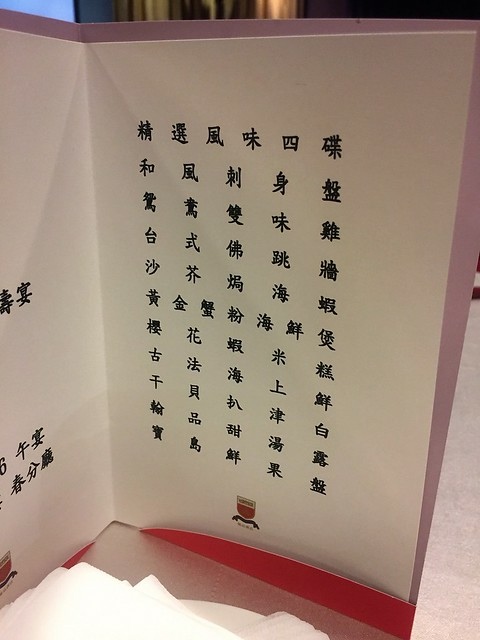 壽宴
6 午宴
春分廳
精選風味四碟
和風刺身盤
鴛鴦雙味雞
台式佛跳牆
沙芥焗海蝦
黃金蟹粉海鮮煲
櫻花蝦米糕
古法海上鮮
干貝扒津白
翰品甜湯露
寶島鮮果盤